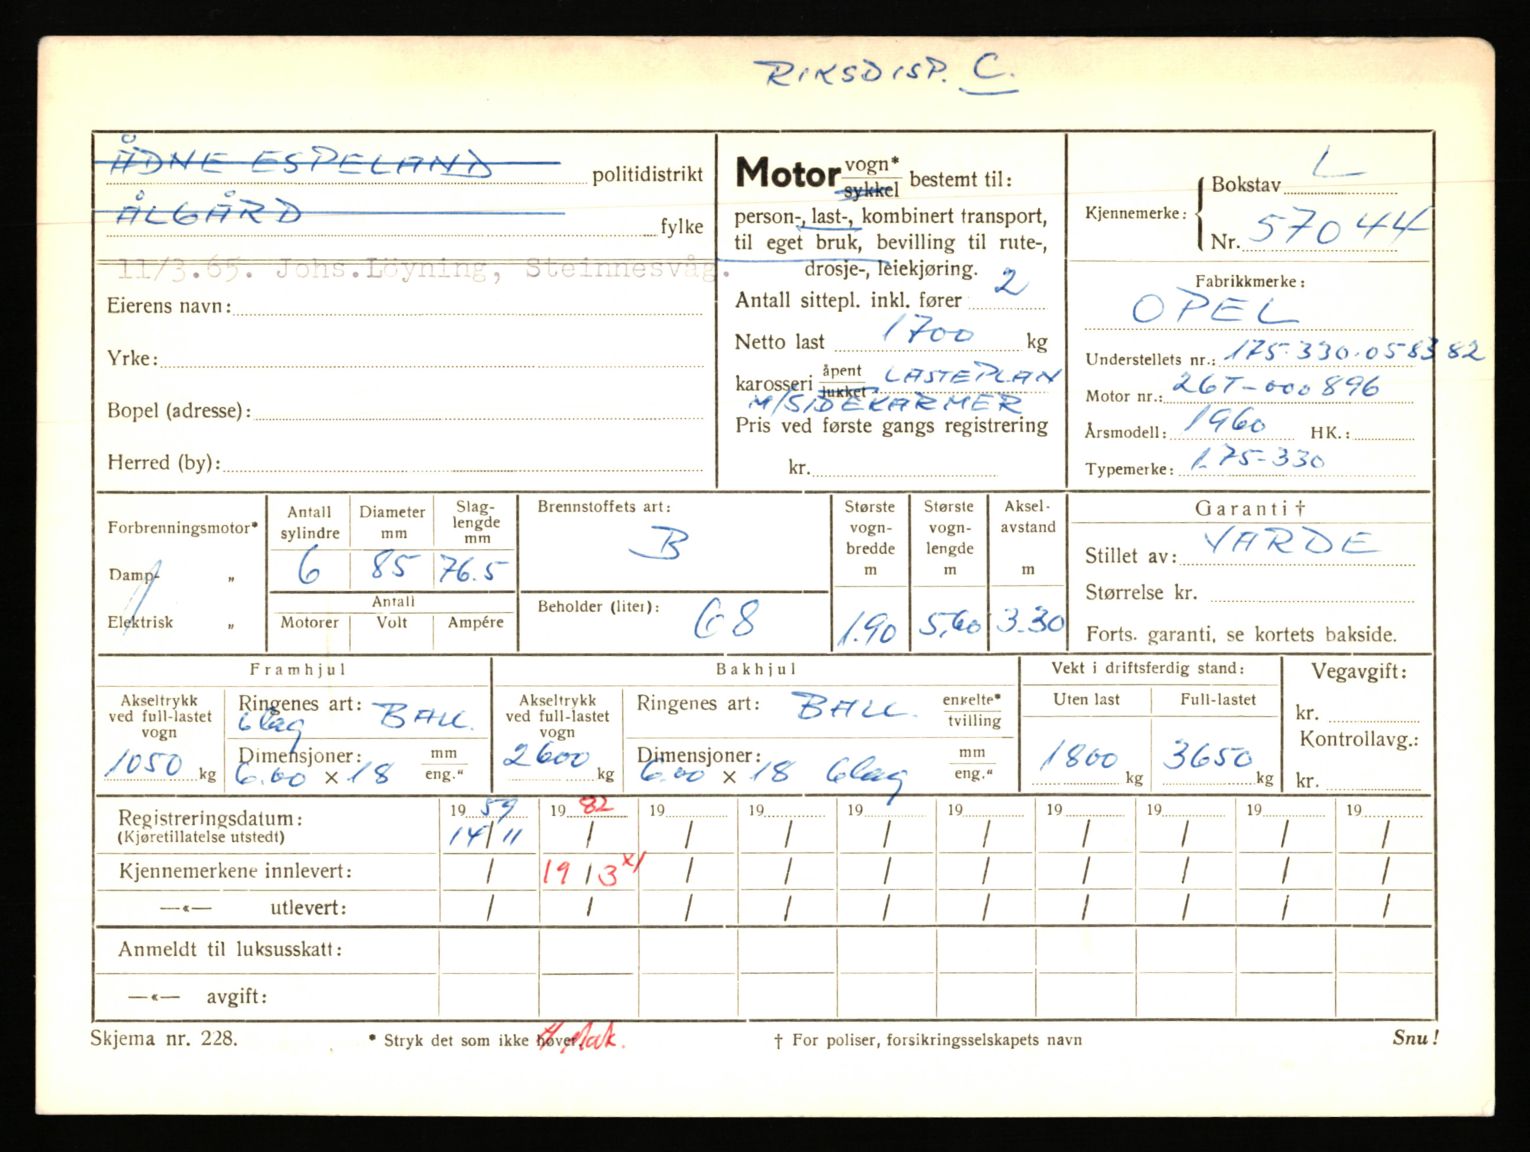 RIKSDISP. C.
ÅDNE ESPELAND politidistrikt
ÅLGÅRD fylke
11/3.65. Johs.Löyning, Steinnesvåg.
Eierens navn:
Yrke:
Bopel (adresse):
Herred (by):
Motor vogn* sykkel bestemt til:
person-, last-, kombinert transport,
til eget bruk, bevilling til rute-,
drosje-, leiekjøring.
Antall sittepl. inkl. fører 2
Netto last 1700 kg
karosseri åpent lukket LASTEPLAN
M/SIDEKARMER
Pris ved første gangs registrering
kr.
Kjennemerke: Bokstav L
Nr. 57044
Fabrikkmerke:
OPEL
Understellets nr.: 175-330-0583 82
Motor nr.: 26T-000896
Årsmodell: 1960 HK.:
Typemerke: 1.75-330
Forbrenningsmotor*
Damp- „
Elektrisk „
Antall sylindre Diameter mm Slag-lengde mm
6 85 76.5
Antall
Motorer Volt Ampére
Brennstoffets art:
B
Beholder (liter): 68
Største vogn-bredde m Største vogn-lengde m Aksel-avstand m
1.90 5,60 3.30
Garanti †
Stillet av: VARDE
Størrelse kr.
Forts. garanti, se kortets bakside.
Framhjul
Akseltrykk ved full-lastet vogn
1050 kg
Ringenes art: BALL.
6lag
Dimensjoner: mm eng."
6.00 × 18
Bakhjul
Akseltrykk ved full-lastet vogn
2600 kg
Ringenes art: BALL. enkelte* tvilling
Dimensjoner: mm eng."
6.00 × 18 6lag
Vekt i driftsferdig stand:
Uten last Full-lastet
1800 kg 3650 kg
Vegavgift:
kr.
Kontrollavg.:
kr.
Registreringsdatum: 19 59 19 82 19 19 19 19 19 19 19 19
(Kjøretillatelse utstedt) 14/11 / / / / / / / / /
Kjennemerkene innlevert: / 19/3 x/ / / / / / / / /
—«— utlevert: / / / / / / / / / /
Anmeldt til luksusskatt:
—«— avgift:
Skjema nr. 228. * Stryk det som ikke høver. † For poliser, forsikringsselskapets navn Snu!